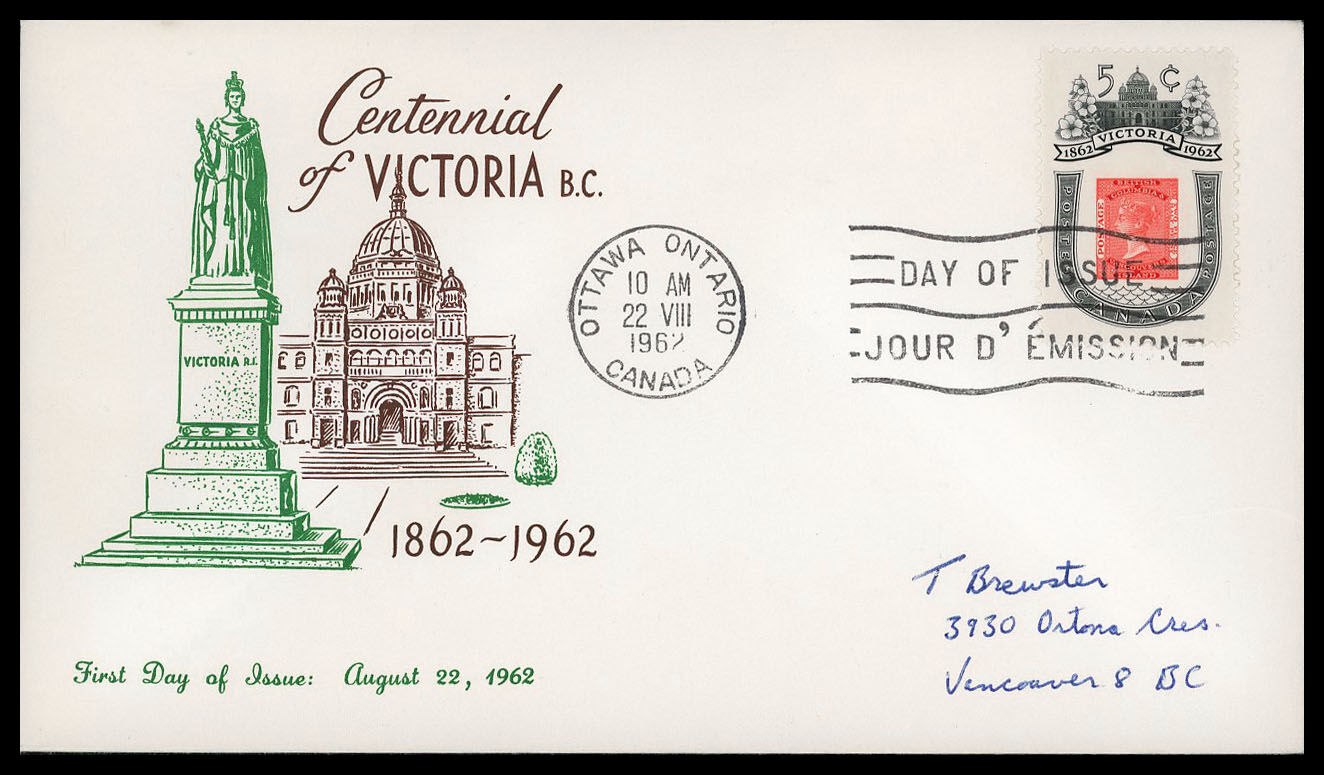 Centennial
of VICTORIA B.C.
VICTORIA R.I.
1862~1962
First Day of Issue: August 22, 1962
OTTAWA ONTARIO
10 AM
22 VIII
1962
CANADA
DAY OF ISSUE
JOUR D'ÉMISSION
5 ¢
1862 VICTORIA 1962
POSTES POSTAGE
CANADA
BRITISH
COLUMBIA &
POSTAGE
VANCOUVER
ISLAND
T Brewster
3930 Ortona Cres.
Vancouver 8 BC